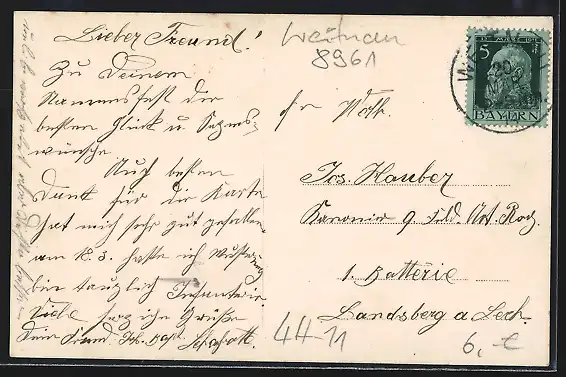 Lieber Freund!
Zu Deinem
Namensfest die
besten Glück u. Segens-
wünsche.
Auch besten
Dank für die Karte
hat mich sehr gut gefallen
am 18. 3. hatte ich Musterung
bin tauglich Infanterie
Viele herzliche Grüße
Dein Freund
Weitnau
8961
Jos. Hauber
Kanonier 9. Feld. Art. Reg.
1. Batterie
Landsberg a Lech.
44-11
6,- €
5
BAYERN